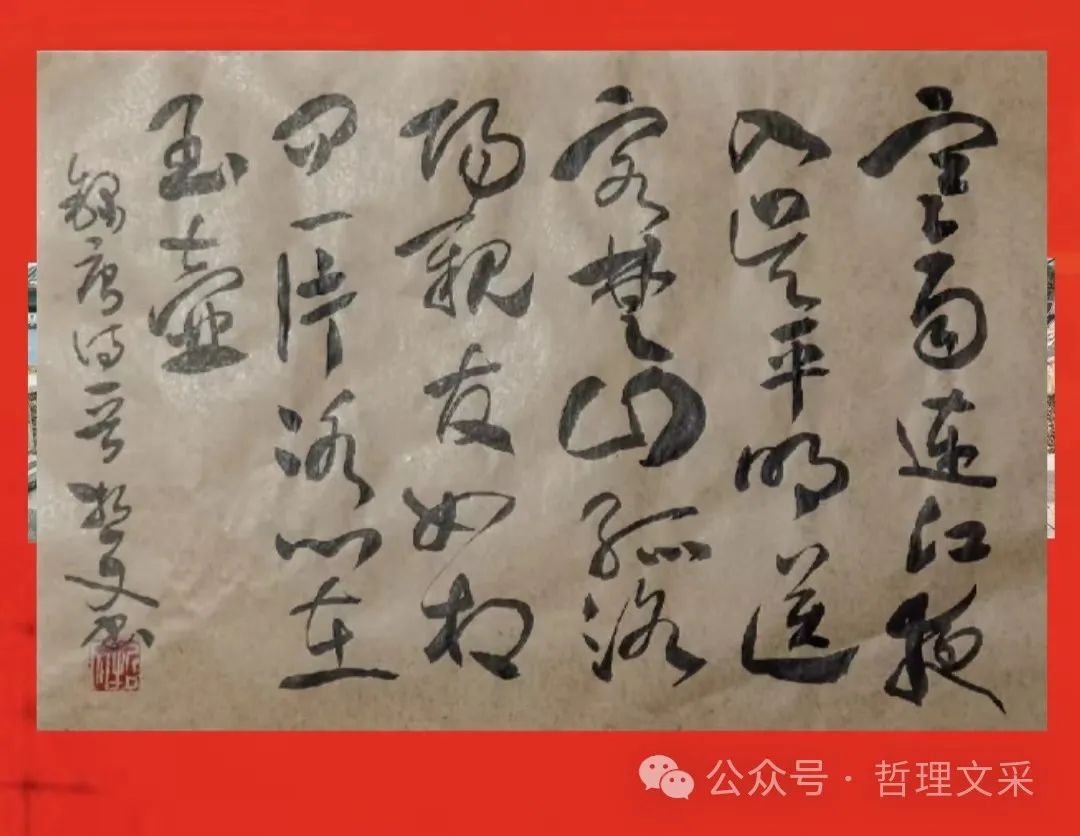 寒雨連江夜
入吴平明送
客楚山孤洛
陽親友如相
问一片冰心在
玉壶
録唐诗一首 哲文书
公众号 · 哲理文采